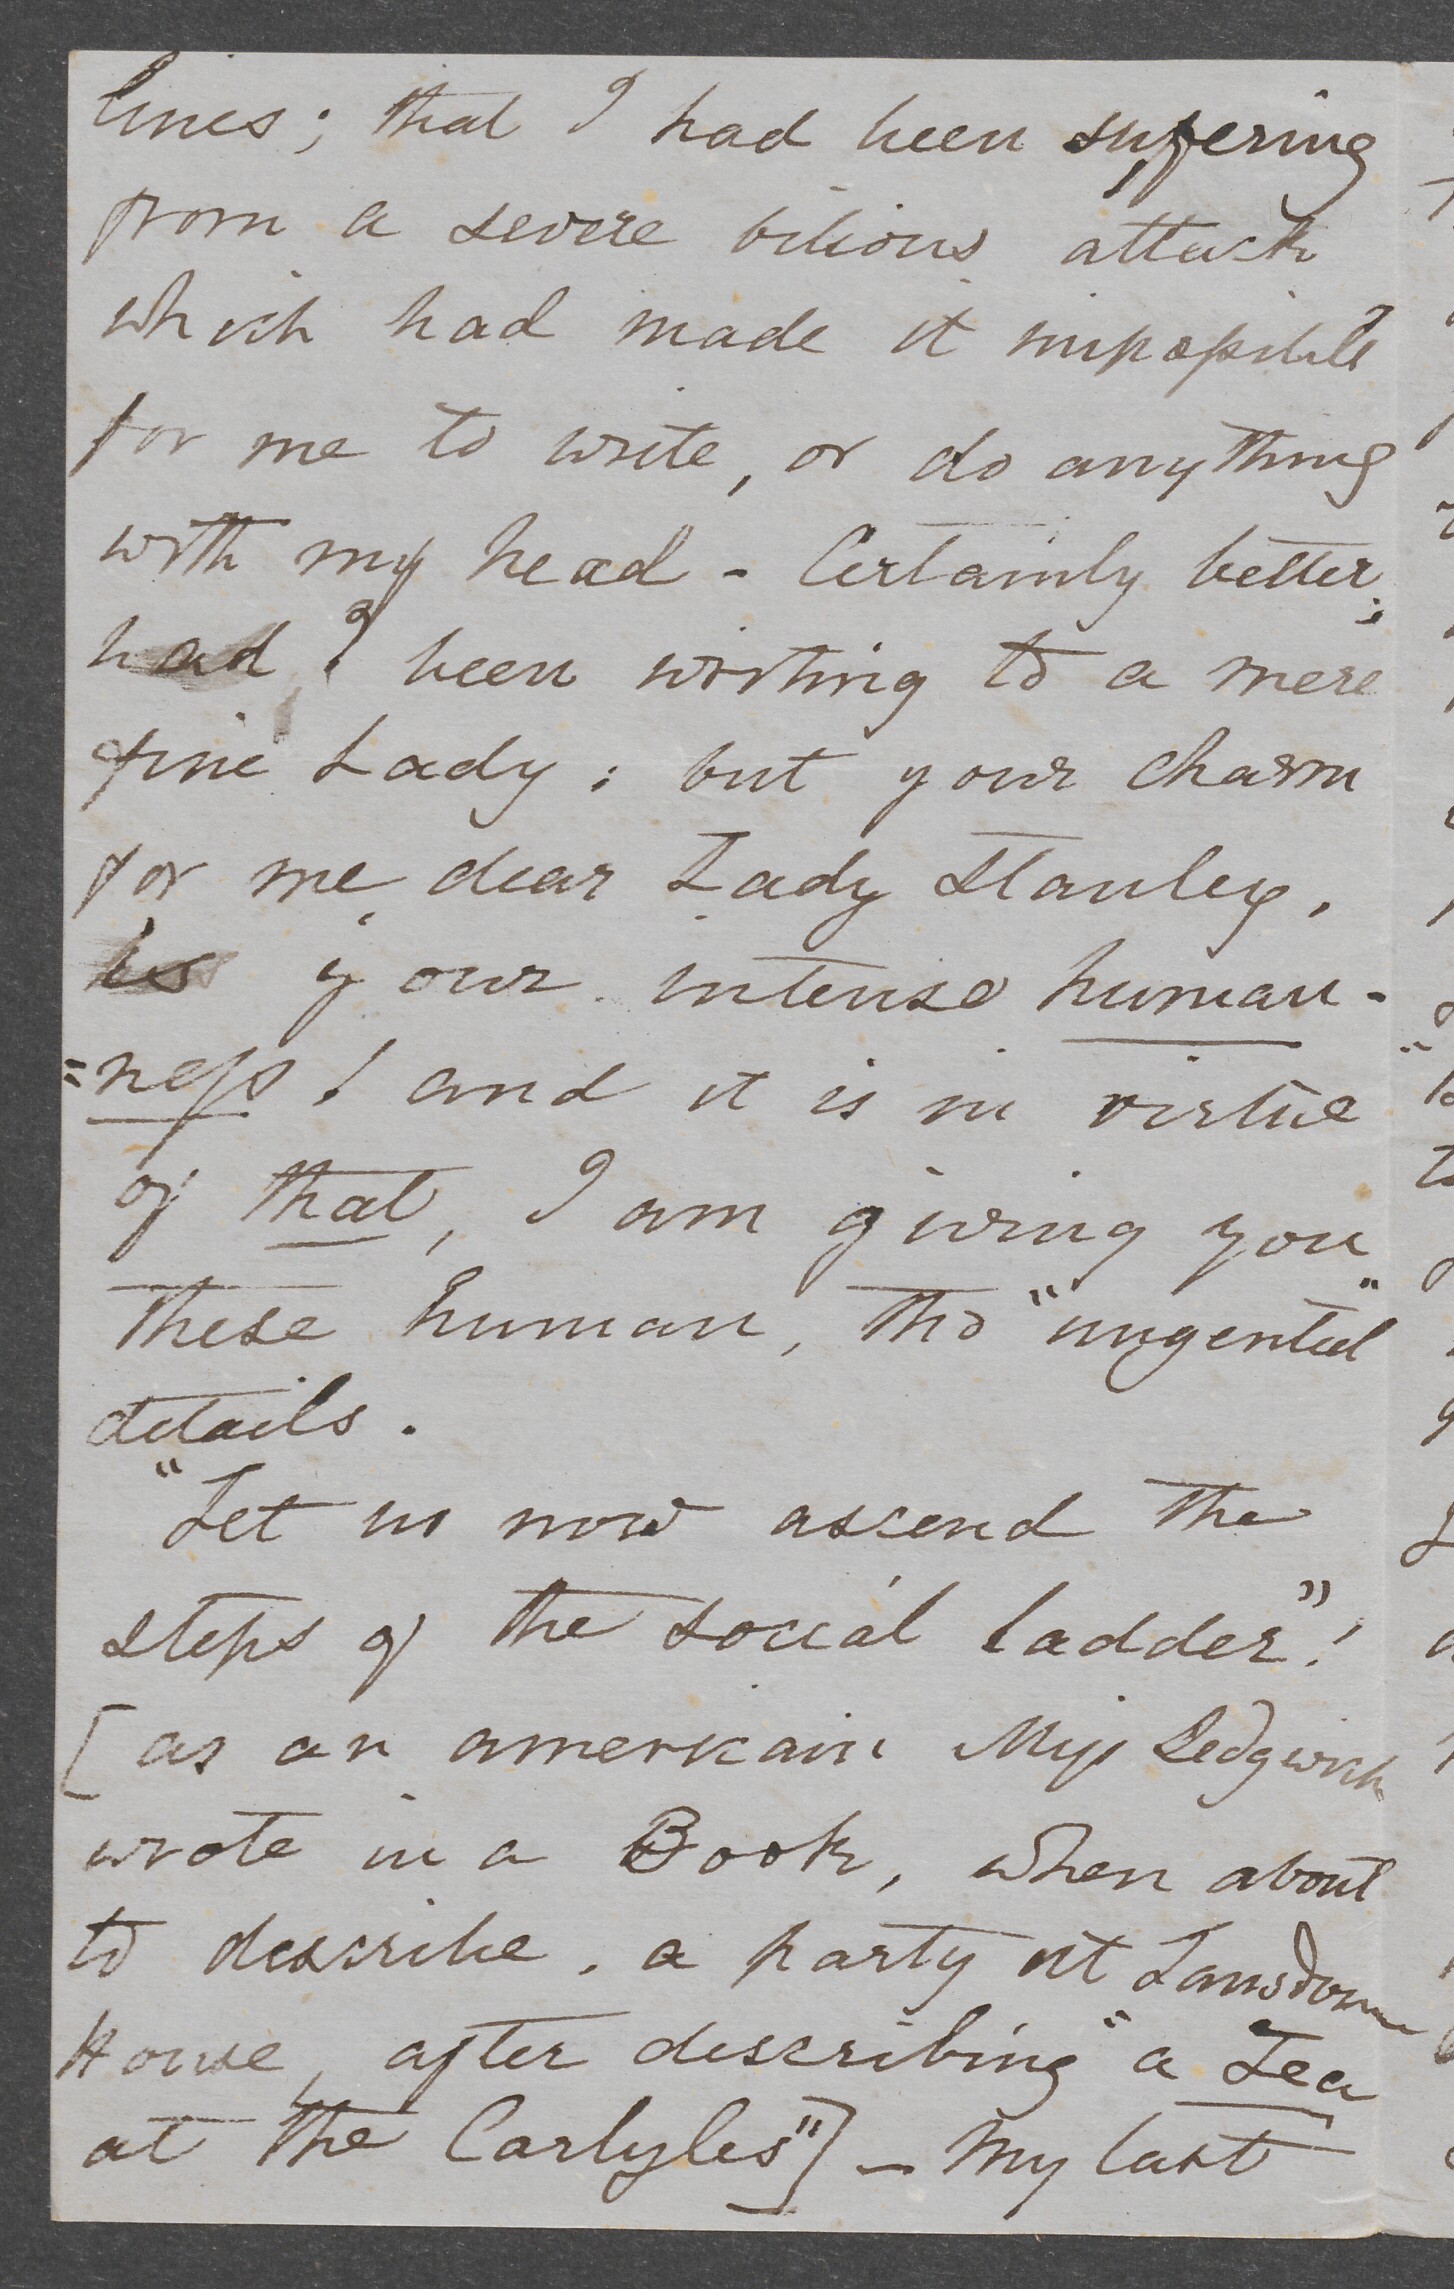 lines; that I had been suffering
from a severe bilious attack
which had made it impossible
for me to write, or do anything
with my head - Certainly better,
had I been writing to a mere
fine Lady; but your charm
for me dear Lady Stanley,
is your intense human-
=ness! and it is in virtue
of that, I am giving you
these human, tho "ungenteel"
details.
"Let us now ascend the
steps of the social ladder"!
[as an amerikain Miss Sedgwick
wrote in a Book, when about
to describe, a party at Lansdowne
House, after describing "a Tea
at the Carlyles"] - My last